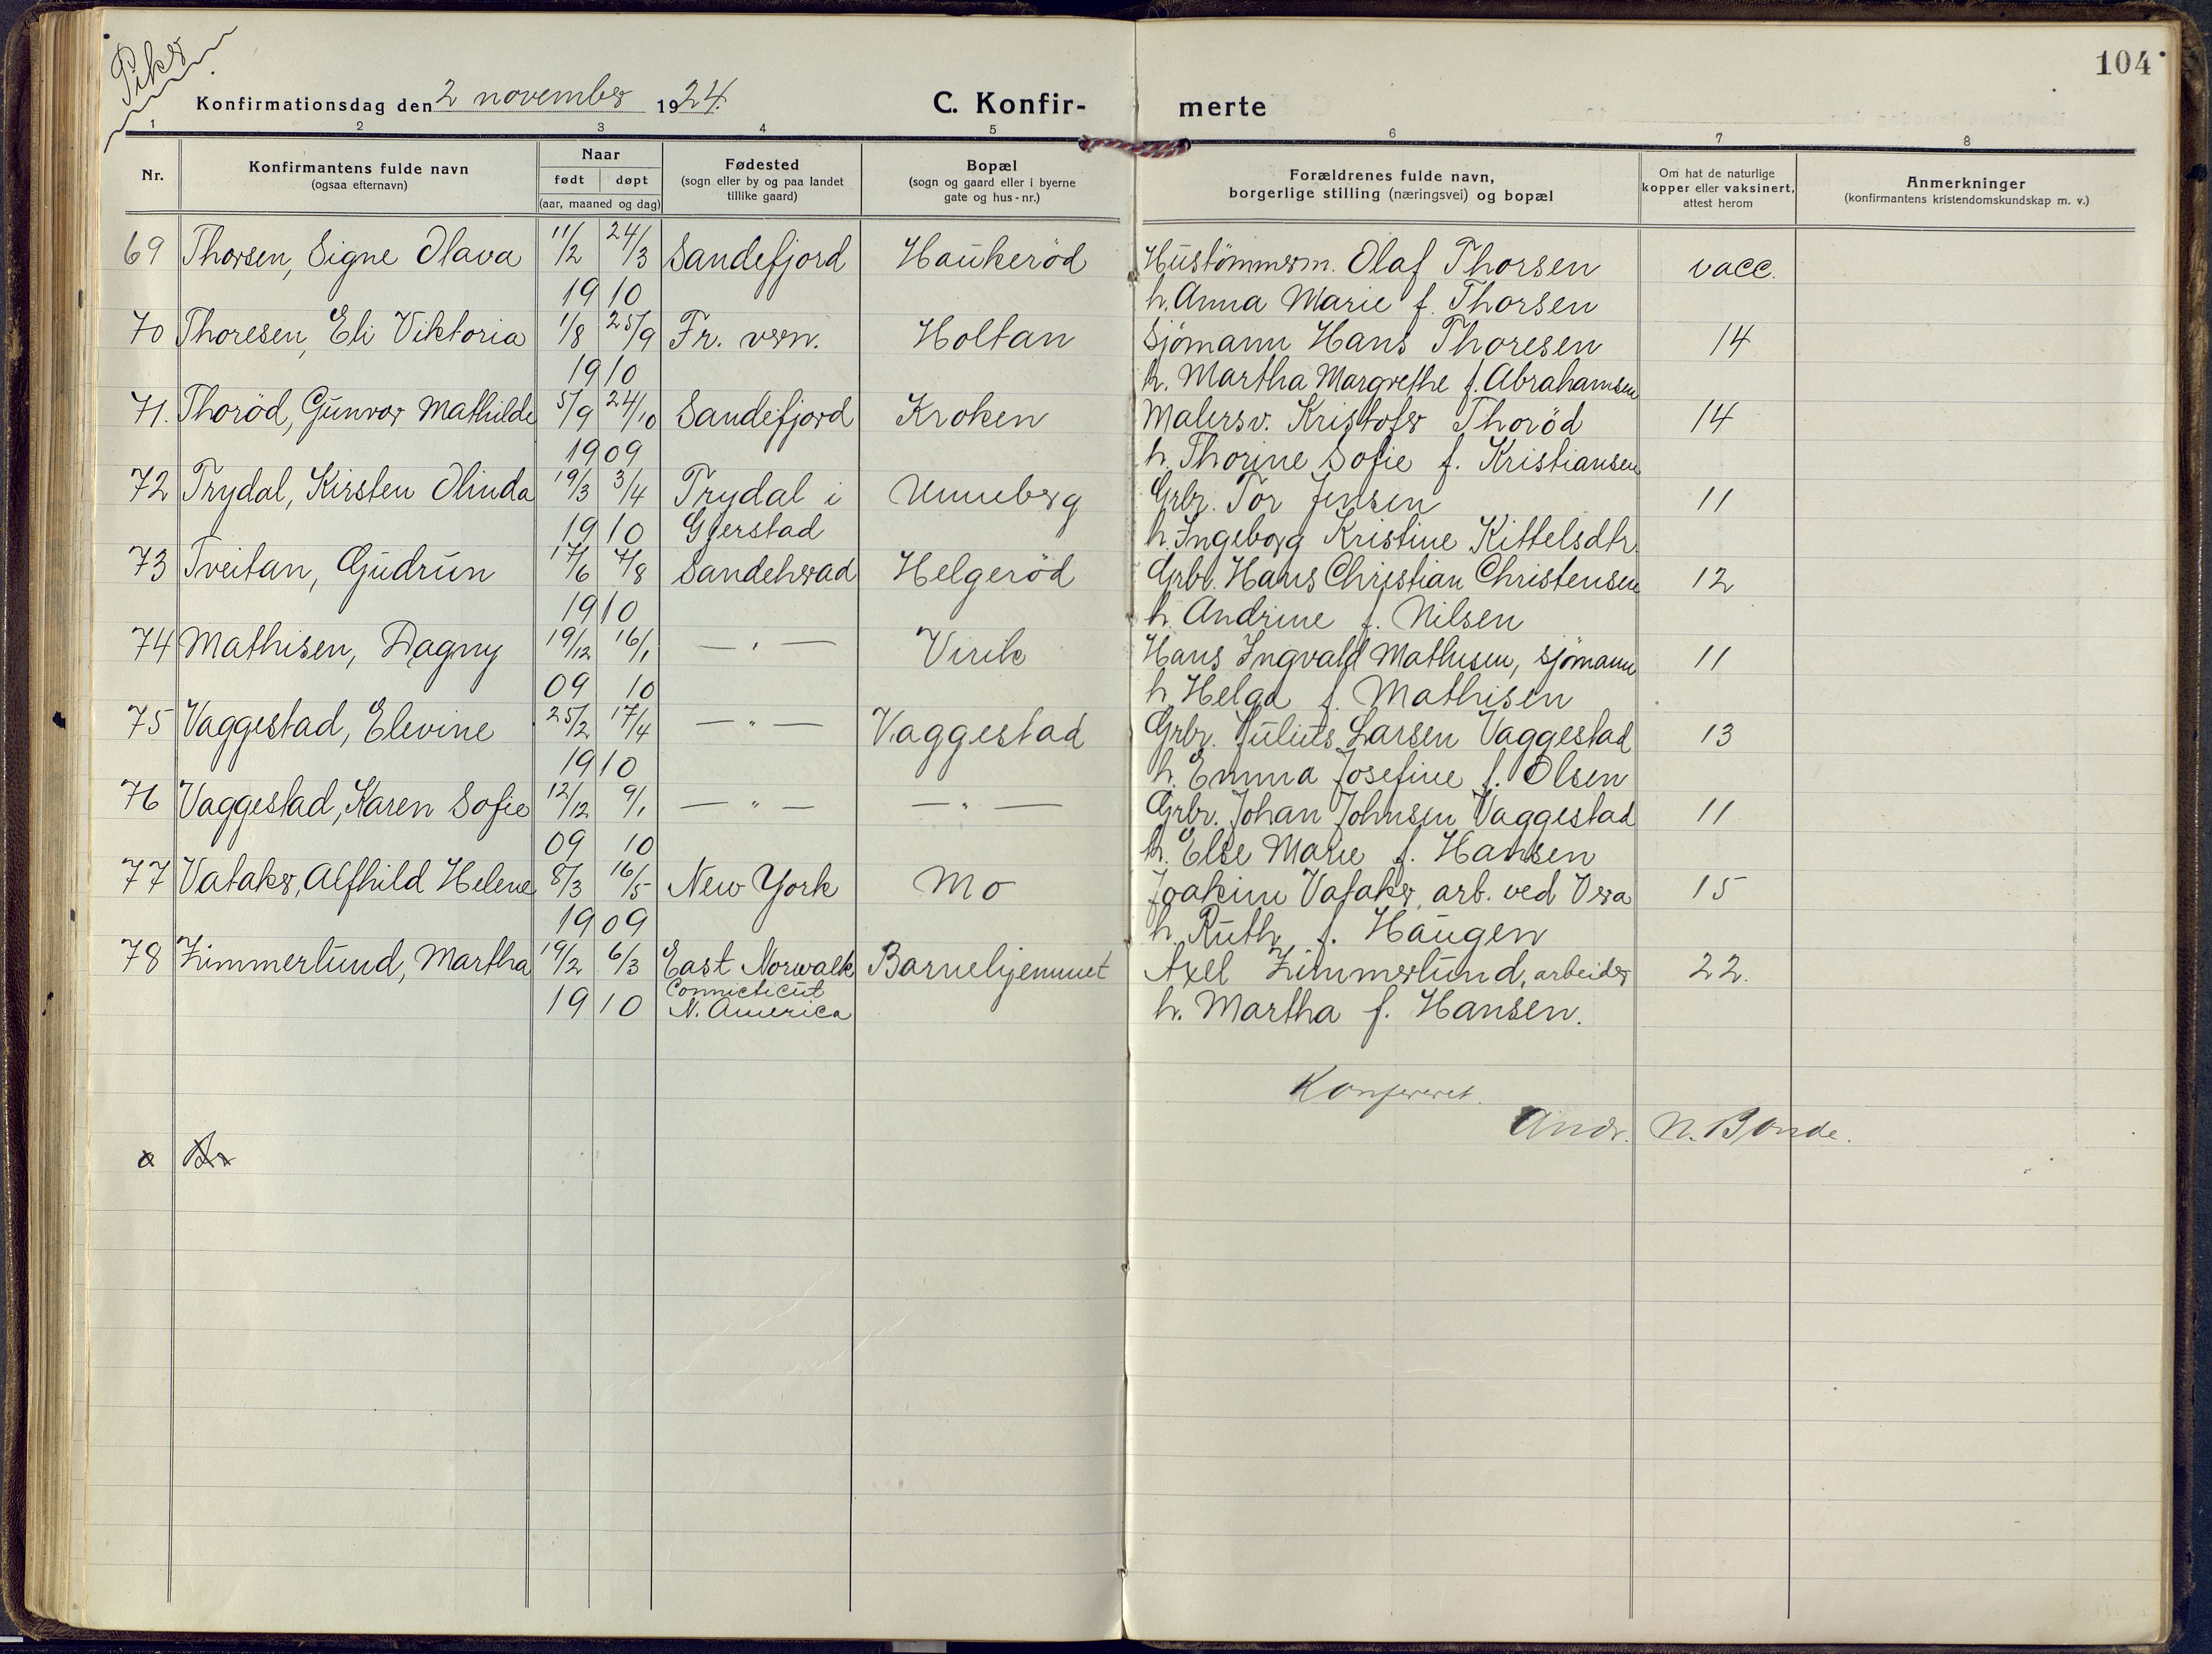 Piker
104
Konfirmationsdag den 2 november 1924.
C. Konfir-
merte
1 2 3 4 5 6 7 8
Nr.
Konfirmantens fulde navn
(ogsaa efternavn)
Naar
født døpt
(aar, maaned og dag)
Fødested
(sogn eller by og paa landet
tillike gaard)
Bopæl
(sogn og gaard eller i byerne
gate og hus-nr.)
Forældrenes fulde navn,
borgerlige stilling (næringsvei) og bopæl
Om hat de naturlige
kopper eller vaksinert,
attest herom
Anmerkninger
(konfirmantens kristendomskundskap m. v.)
69 Thorsen, Signe Olava 11/2 24/3 Sandefjord Haukerød Hustømmerm. Olaf Thorsen vacc.
1910 h. Anna Marie f. Thorsen
70 Thoresen, Eli Viktoria 1/8 25/9 Fr. vern. Holtan Sjømann Hans Thoresen 14
1910 h. Martha Margrethe f. Abrahamsen
71. Thorød, Gunvor Mathilde 5/9 24/10 Sandefjord Kroken Malersv. Kristofer Thorød 14
1909 h. Thorine Sofie f. Kristiansen
72 Trydal, Kirsten Olinda 19/3 3/4 Trydal i Unneberg Grbr. Tor Jensen 11
1910 Gjerstad h. Ingeborg Kristine Kittelsdtr.
73 Tveitan, Gudrun 17/6 7/8 Sandeherad Helgerød Grbr. Hans Christian Christensen 12
1910 h. Andrine f. Nilsen
74 Mathisen, Dagny 19/12 16/1 — " — Virik Hans Ingvald Mathisen, sjømann 11
09 10 h. Helga f. Mathisen
75 Vaggestad, Elevine 25/2 17/4 — " — Vaggestad Grbr. Julius Larsen Vaggestad 13
1910 h. Emma Josefine f. Olsen
76 Vaggestad, Karen Sofie 12/12 9/1 — " — — " — Grbr. Johan Johnsen Vaggestad 11
09 10 h. Else Marie f. Hansen
77 Vataker, Alfhild Helene 8/3 16/5 New York Mo Joakim Vataker, arb. ved Vera 15
1909 h. Ruth f. Haugen
78 Zimmerlund, Martha 19/2 6/3 East Norwalk Barnehjemmet Axel Zimmerlund, arbeider 22.
Connicticut
1910 N. America h. Martha f. Hansen.
Konfereret.
Andr. N. Bonde.